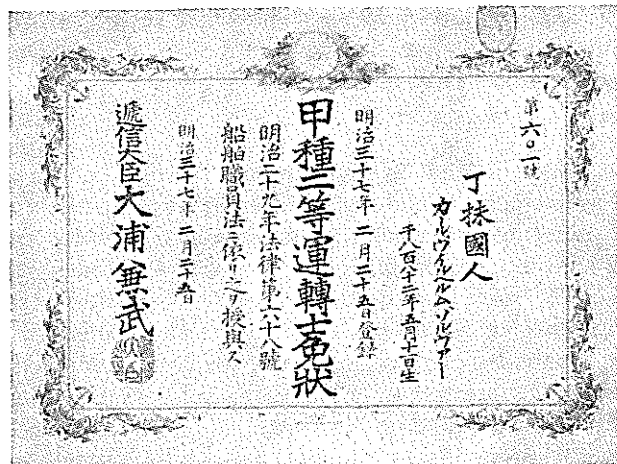 第六〇一號
丁抹國人
カールヴィルヘルムソルヴァー
千八百八十二年五月十日生
明治三十七年二月二十五日登錄
甲種二等運轉士免狀
明治二十九年法律第六十八號
船舶職員法ニ依リ之ヲ授與ス
明治三十七年二月二十五日
遞信大臣大浦兼武